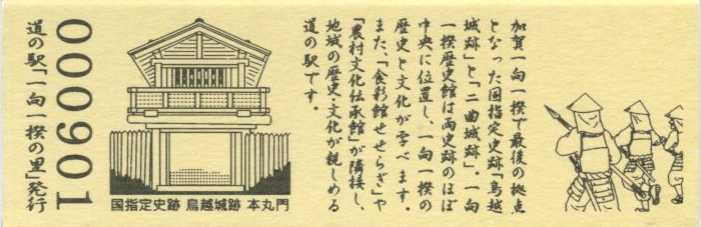 加賀一向一揆で最後の拠点
となった国指定史跡「鳥越
城跡」と「二曲城跡」。一向
一揆歴史館は両史跡のほぼ
中央に位置し、一向一揆の
歴史と文化が学べます。
また、「食彩館せせらぎ」や
「農村文化伝承館」が隣接し、
地域の歴史・文化が親しめる
道の駅です。
国指定史跡 鳥越城跡 本丸門
000901
道の駅「一向一揆の里」発行